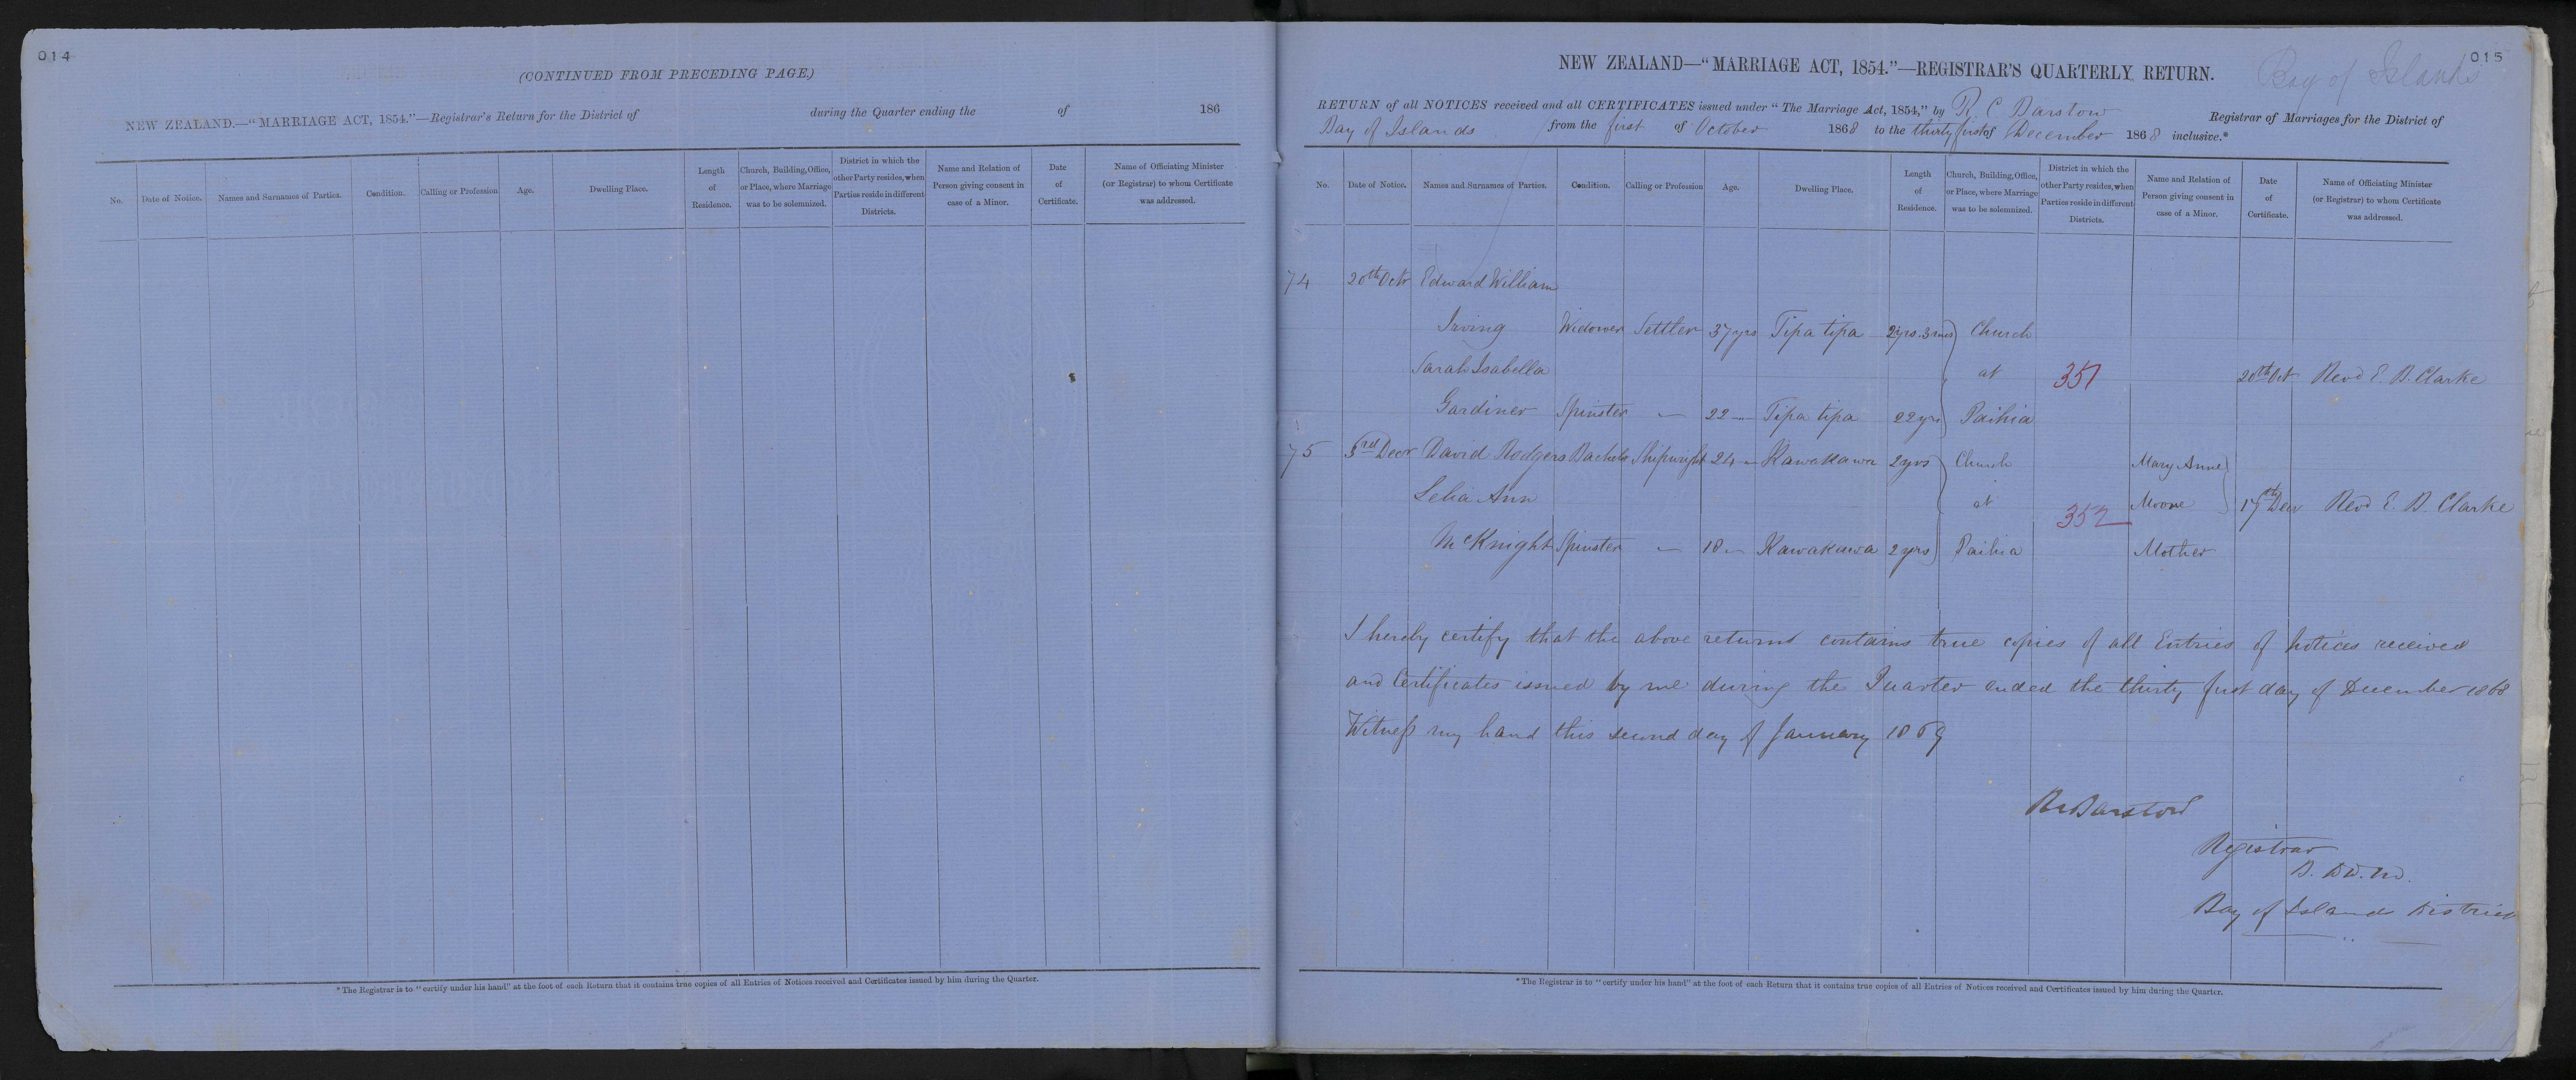 014
(CONTINUED FROM PRECEDING PAGE.)
NEW ZEALAND.—"MARRIAGE ACT, 1854."—Registrar's Return for the District of during the Quarter ending the of 186
No. Date of Notice. Names and Surnames of Parties. Condition. Calling or Profession Age. Dwelling Place. Length of Residence. Church, Building, Office, or Place, where Marriage was to be solemnized. District in which the other Party resides, when Parties reside in different Districts. Name and Relation of Person giving consent in case of a Minor. Date of Certificate. Name of Officiating Minister (or Registrar) to whom Certificate was addressed.
*The Registrar is to "certify under his hand" at the foot of each Return that it contains true copies of all Entries of Notices received and Certificates issued by him during the Quarter.
015
Bay of Islands
NEW ZEALAND—"MARRIAGE ACT, 1854."—REGISTRAR'S QUARTERLY RETURN.
RETURN of all NOTICES received and all CERTIFICATES issued under "The Marriage Act, 1854," by R. C Barstow Registrar of Marriages for the District of
Bay of Islands from the first of October 1868 to the thirty first of December 1868 inclusive.*
No. Date of Notice. Names and Surnames of Parties. Condition. Calling or Profession Age. Dwelling Place. Length of Residence. Church, Building, Office, or Place, where Marriage was to be solemnized. District in which the other Party resides, when Parties reside in different Districts. Name and Relation of Person giving consent in case of a Minor. Date of Certificate. Name of Officiating Minister (or Registrar) to whom Certificate was addressed.
74 20th Octr Edward William
Irving Widower Settler 37 yrs Tipa tipa 2yrs. 3 mos Church
Sarah Isabella at 351 20th Oct Revd E. B. Clarke
Gardiner Spinster — 22 — Tipa tipa 22 yrs Paihia
75 3rd Decr David Rodgers Bachelor Shipwright 24 — Kawakawa 2 yrs Church Mary Anne
Lelia Ann at 352 Moore 17th Decr Revd E. B. Clarke
McKnight Spinster — 18 — Kawakawa 2 yrs Paihia Mother
I hereby certify that the above returns contains true copies of all Entries of Notices received
and Certificates issued by me during the Quarter ended the thirty first day of December 1868
Witness my hand this second day of January 1869
R C Barstow
Registrar
B. D & M.
Bay of Islands District
*The Registrar is to "certify under his hand" at the foot of each Return that it contains true copies of all Entries of Notices received and Certificates issued by him during the Quarter.